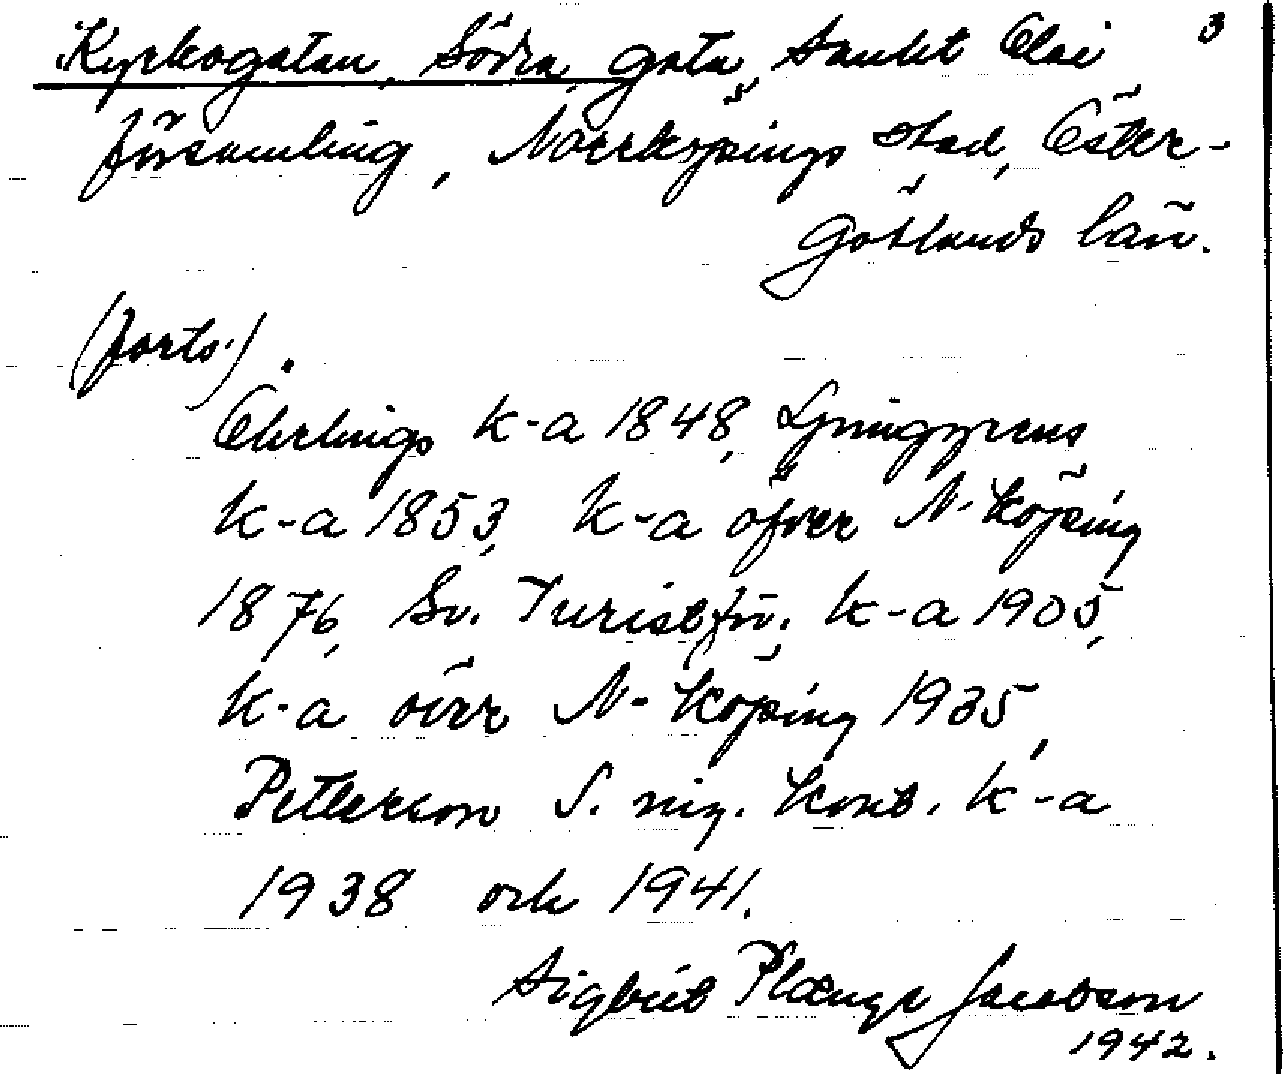 Kyrkogatan, Södra, gata, Sankt Olai 3
församling, Norrköpings stad, Öster-
götlands län.
(forts.).
Ehrlings k-a 1848, Ljunggrens
k-a 1853, k-a öfver N-köping
1876, Sv. Turistför. k-a 1905,
k-a över N-köping 1935,
Petterson S. nig. kont. k-a
1938 och 1941.
Sigbrit Plænge Jacobson
1942.